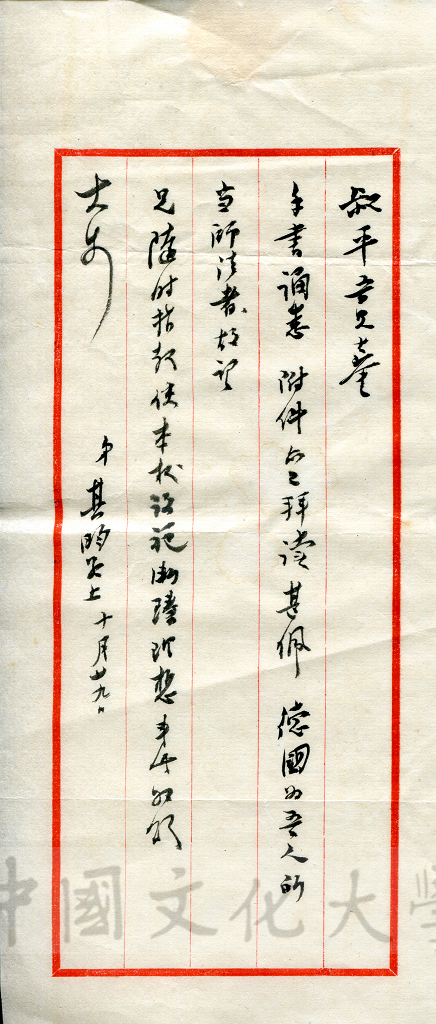 叔平吾兄大鑒
手書誦悉 附件亦已拜讀甚佩 德國為吾人所
當師法者故望
兄隨時指教使本校設施漸臻理想專此敬頌
大安
弟其昀敬上 十月廿九日
中國文化大學